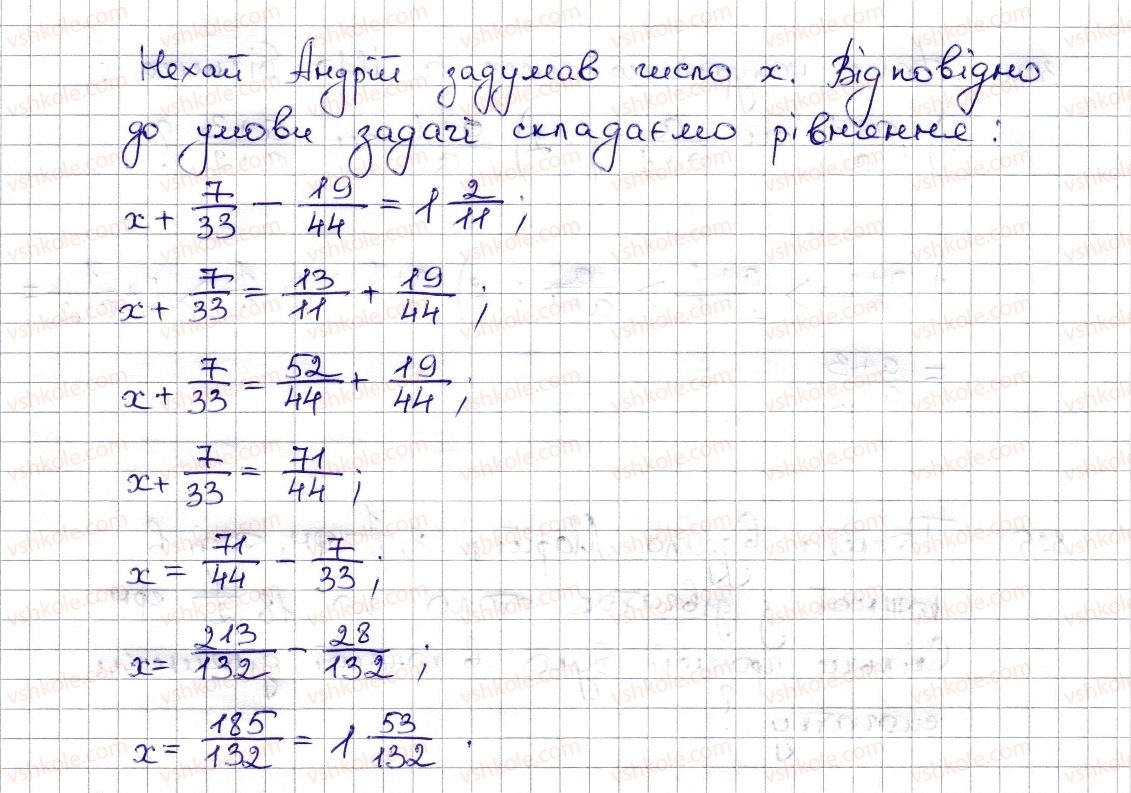 Нехай Андрій задумав число x. Відповідно
до умови задачі складаємо рівняння:
x + 7/33 − 19/44 = 1 2/11;
x + 7/33 = 13/11 + 19/44;
x + 7/33 = 52/44 + 19/44;
x + 7/33 = 71/44;
x = 71/44 − 7/33;
x = 213/132 − 28/132;
x = 185/132 = 1 53/132.